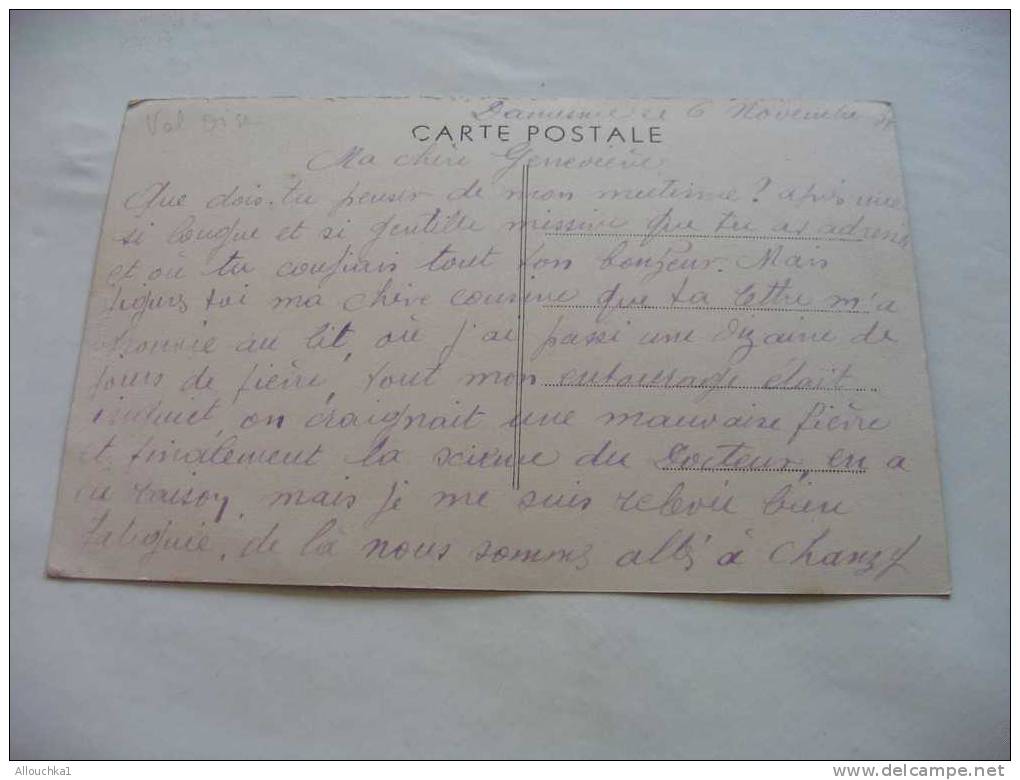 Val Oise
le 6 Novembre
CARTE POSTALE
Ma chère Geneviève
Que dois-tu penser de mon mutisme? après une
si longue et si gentille missive que tu as adressé
et où tu confiais tout ton bonheur. Mais
figures toi ma chère cousine que ta lettre m'a
trouvée au lit, où j'ai passé une dizaine de
jours de fièvre, tout mon entourage était
inquiet, on craignait une mauvaise fièvre
et finalement la science du Docteur, en a
eu raison, mais je me suis relevée bien
fatiguée, de là nous sommes allés à Chanzy
Allouchka1
www.delcampe.net